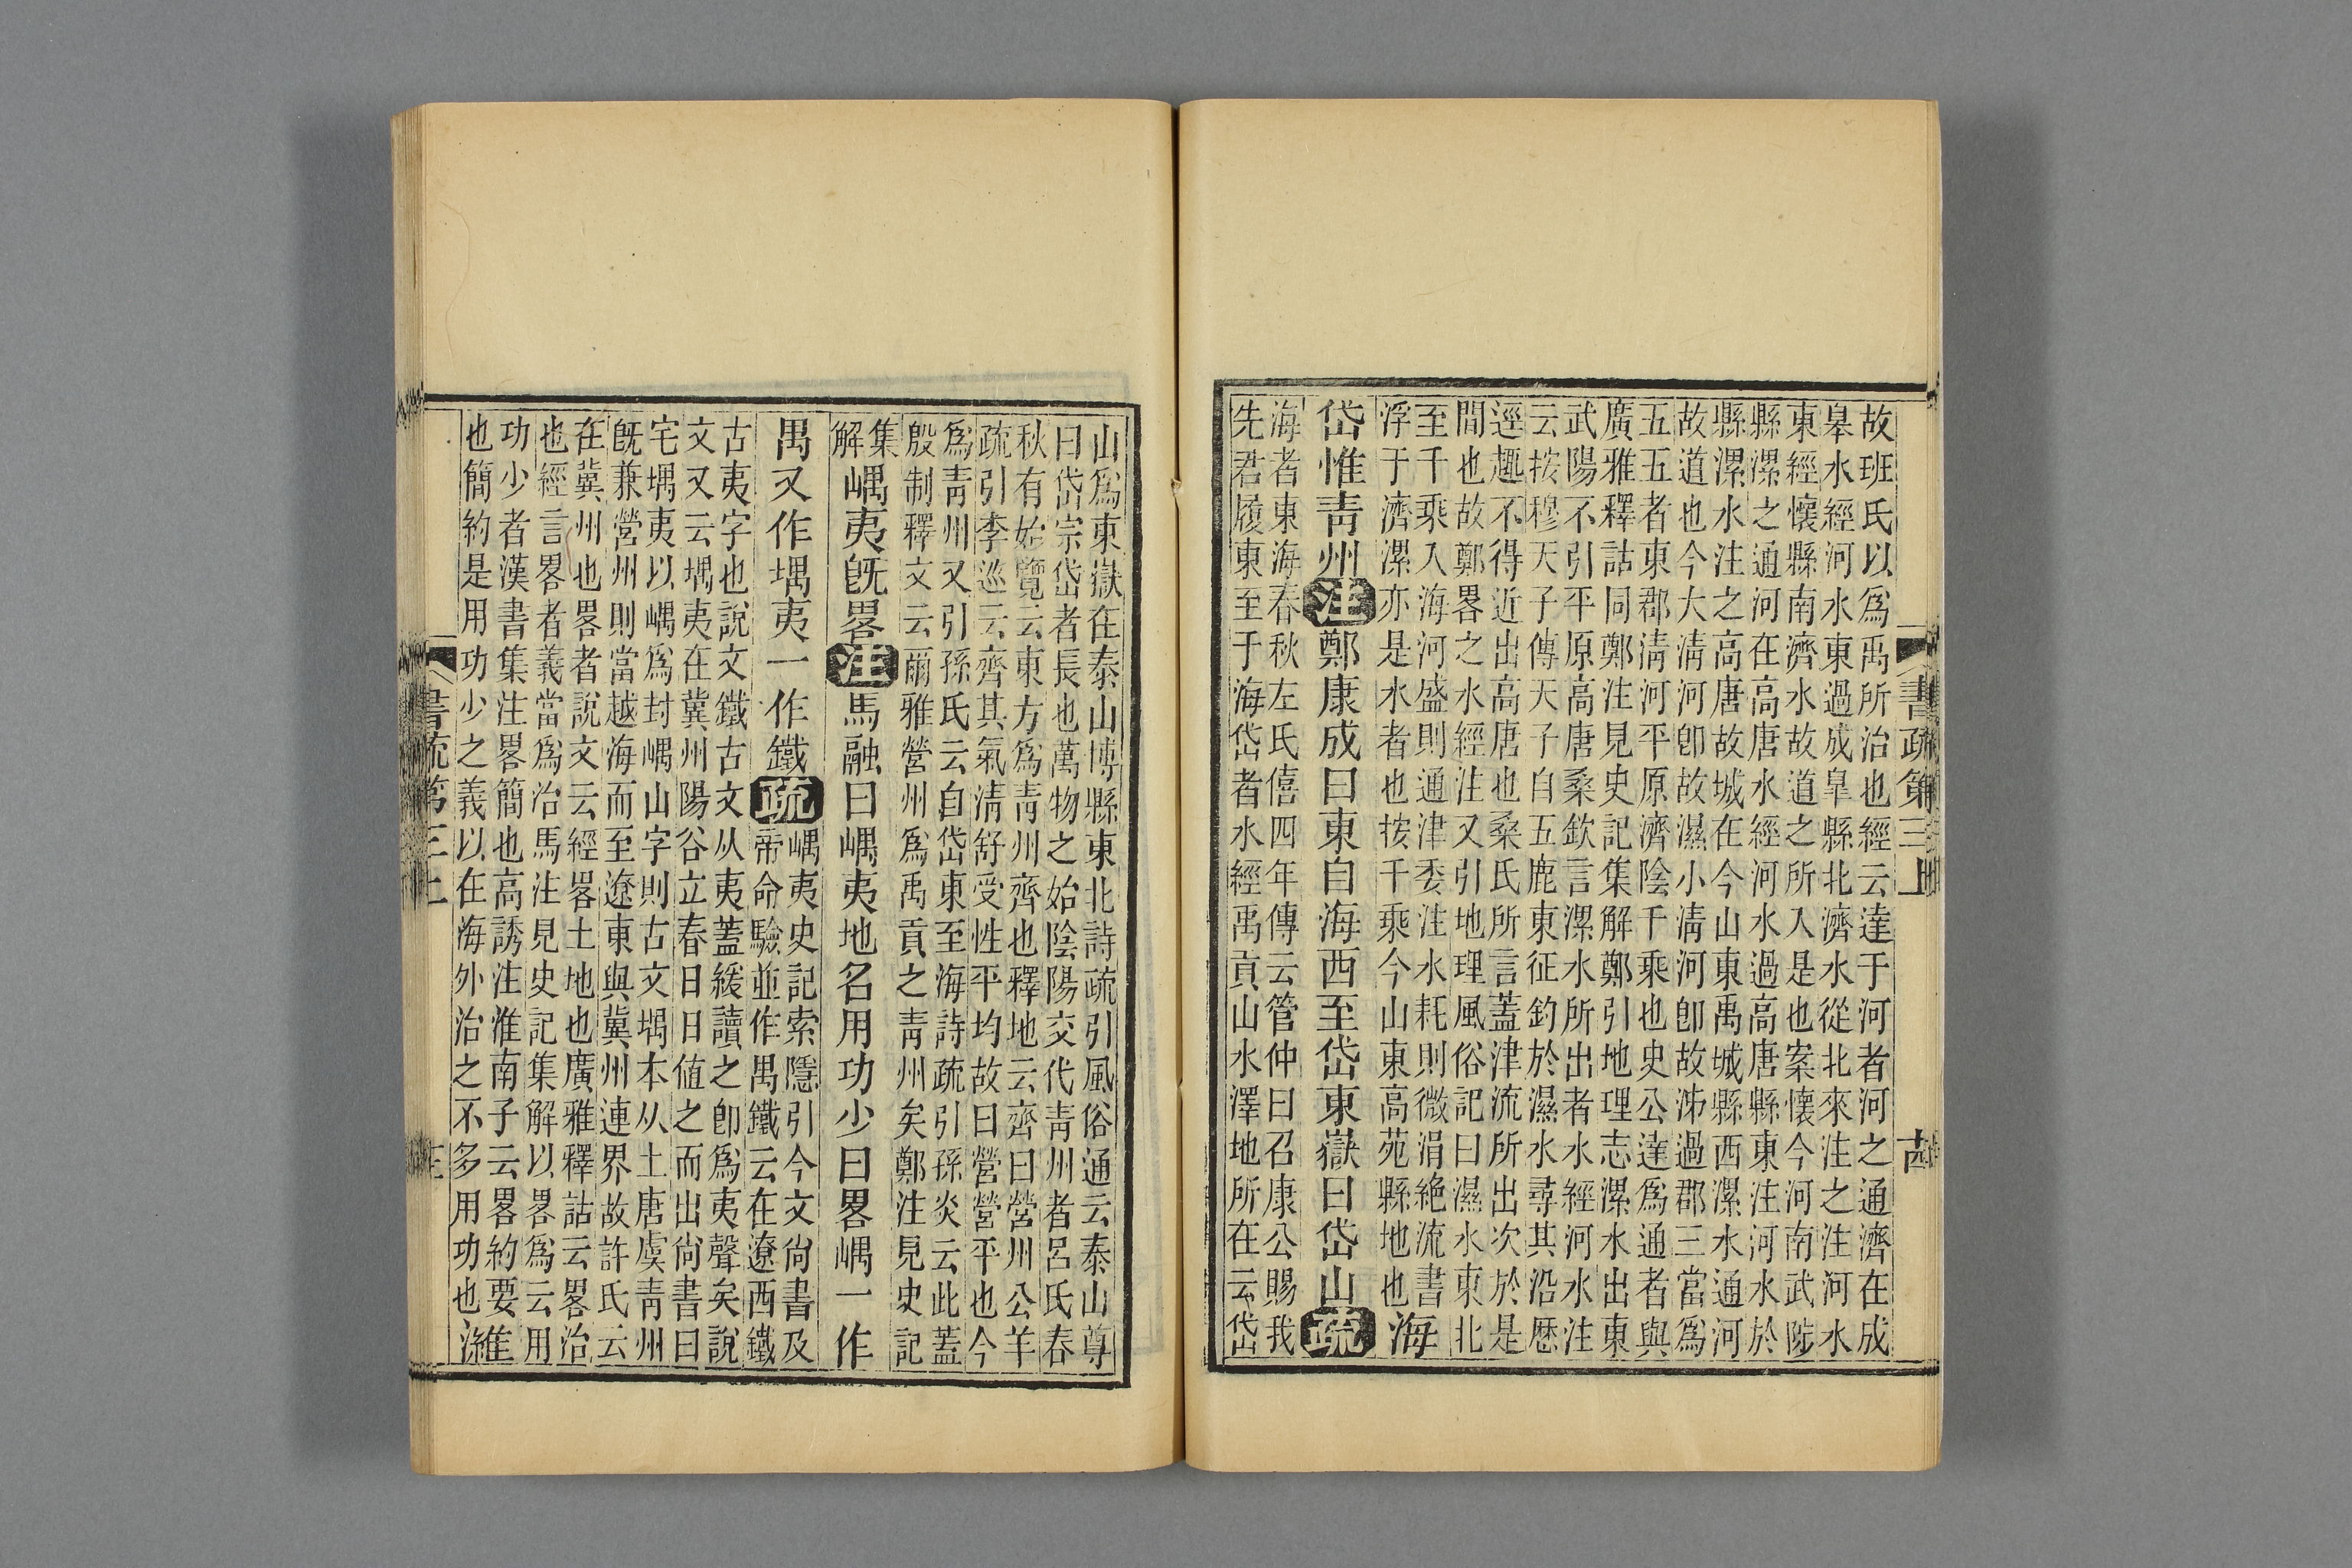 故班氏以爲禹所治也經云達于河者河之通濟在成
皋水經河水東過成皐縣北濟水從北來注之注河水
東經懷縣南濟水故道之所入是也案懷今河南武陟
縣漯之通河在高唐水經河水過高唐縣東注河水於
縣漯水注之高唐故城在今山東禹城縣西漯水通河
故道也今大清河卽故濕小清河卽故沛過郡三當爲
五五者東郡清河平原濟陰千乘也史公達爲通者與
廣雅釋詁同鄭注見史記集解鄭引地理志漯水出東
武陽不引平原高唐桑欽言漯水所出者水經河水注
云按穆天子傳天子自五鹿東征釣於濕水尋其沿歷
逕趣不得近出高唐也桑氏所言蓋津流所出次於是
間也故鄭畧之水經注又引地理風俗記曰濕水東北
至千乘入海河盛則通津委注水耗則微涓絶流書
浮于濟漯亦是水者也按千乘今山東高苑縣地也
海
岱惟靑州注鄭康成曰東自海西至岱東嶽曰岱山疏
海者東海春秋左氏僖四年傳云管仲曰召康公賜我
先君履東至于海岱者水經禹貢山水澤地所在云岱
書疏第三上
山爲東嶽在泰山博縣東北詩疏引風俗通云泰山尊
曰岱宗岱者長也萬物之始陰陽交代靑州者呂氏春
秋有始覽云東方爲靑州齊也釋地云齊曰營州公羊
疏引李巡云齊其氣清舒受性平均故曰營營平也今
爲靑州又引孫氏云自岱東至海詩疏引孫炎云此蓋
殷制釋文云爾雅營州爲禹貢之靑州矣鄭注見史記
集
解
嵎夷旣畧注馬融曰嵎夷地名用功少曰畧嵎一作
禺又作堣夷一作鐵疏
嵎夷史記索隱引今文尙書及
帝命驗並作禺鐵云在遼西鐵
古夷字也說文鐵古文从夷蓋緩讀之卽爲夷聲矣說
文又云堣夷在冀州陽谷立春日日値之而出尙書曰
宅堣夷以嵎爲封嵎山字則古文堣本从土唐虞靑州
旣兼營州則當越海而至遼東與冀州連界故許氏云
在冀州也畧者說文云經畧土地也廣雅釋詁云畧治
也經言畧者義當爲治馬注見史記集解以畧爲云用
功少者漢書集注畧簡也高誘注淮南子云畧約要
也簡約是用功少之義以在海外治之不多用功也
濰
書疏第三上